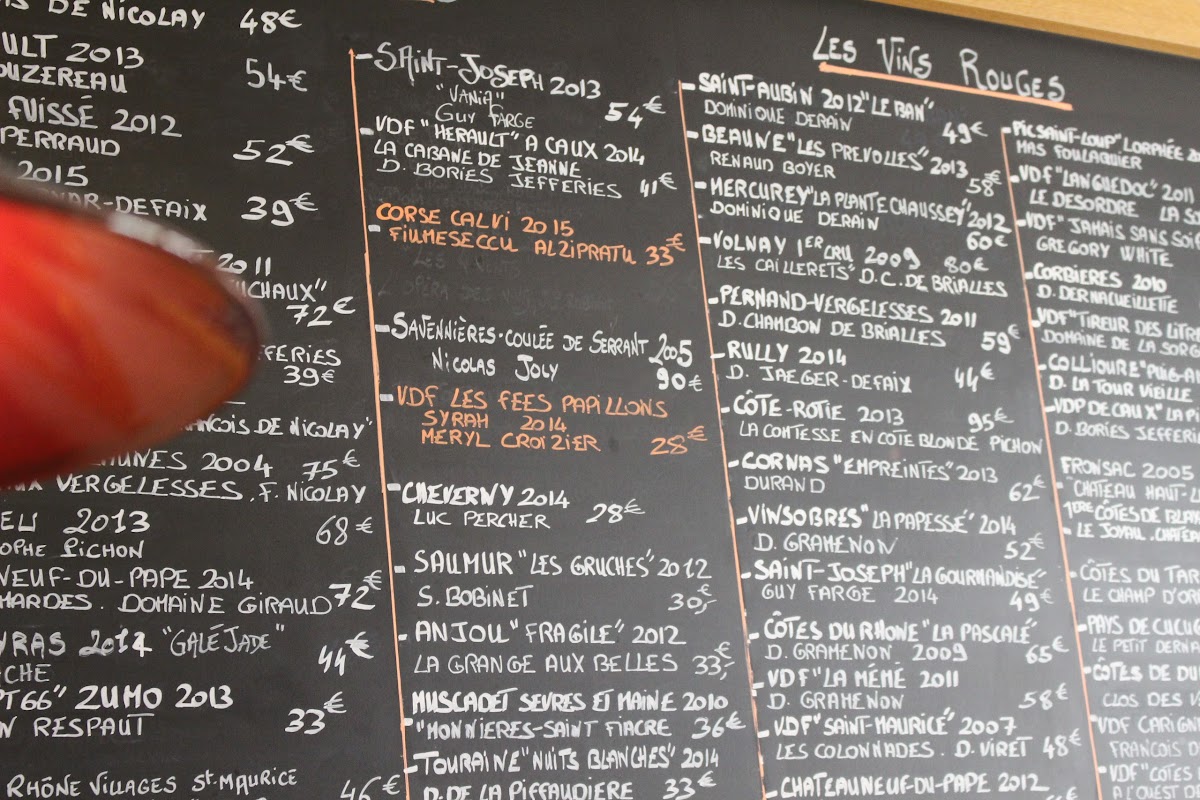 DE NICOLAY 48€
2013
54€
FUISSÉ 2012
PERRAUD 52€
2015
DEFAIX 39€
2011
72€
39€
DE NICOLAY"
2004 75€
VERGELESSES . F. NICOLAY
2013 68€
PICHON
NEUF-DU-PAPE 2014
DOMAINE GIRAUD 72€
"GALÉJADE"
44€
ZUMO 2013
RESPAUT 33€
RHÔNE VILLAGES ST-MAURICE
46€
- SAINT-JOSEPH 2013
"VANIA"
GUY FARGE 54€
- VDF "HERAULT" A CAUX 2014
LA CABANE DE JEANNE
D. BORIES JEFFERIES 41€
CORSE CALVI 2015
- FIUMESECCU ALZIPRATU 33€
- SAVENNIÈRES-COULÉE DE SERRANT 2005
NICOLAS JOLY 90€
- VDF LES FEES PAPILLONS
SYRAH 2014
MERYL CROIZIER 28€
- CHEVERNY 2014
LUC PERCHER 28€
- SAUMUR "LES GRUCHES" 2012
S. BOBINET 30,-
- ANJOU "FRAGILE" 2012
LA GRANGE AUX BELLES 33,-
MUSCADET SEVRES ET MAINE 2010
- "MONNIERES-SAINT FIACRE 36€
- TOURAINE "NUITS BLANCHES" 2014
D. DE LA PIFFAUDIÈRE 33€
LES VINS ROUGES
- SAINT-AUBIN 2012 "LE BAN"
DOMINIQUE DERAIN 49€
- BEAUNE "LES PREVOLLES" 2013
RENAUD BOYER 58€
- MERCUREY "LA PLANTE CHAUSSEY" 2012
DOMINIQUE DERAIN 60€
- VOLNAY 1ER CRU 2009 80€
LES CAILLERETS" D.C. DE BRIALLES
- PERNAND-VERGELESSES 2011
D. CHAMBON DE BRIALLES 59€
- RULLY 2014
D. JAEGER-DEFAIX 44€
- CÔTE-ROTIE 2013 95€
LA COMTESSE EN COTE BLONDE PICHON
- CORNAS "EMPREINTES" 2013
DURAND 62€
- VINSOBRES "LA PAPESSE" 2014
D. GRAMENON 52€
- SAINT-JOSEPH "LA GOURMANDISE"
GUY FARGE 2014 49€
- CÔTES DU RHONE "LA PASCALE"
D. GRAMENON 2009 65€
- VDF "LA MÉMÉ 2011
D. GRAMENON 58€
- VDF "SAINT-MAURICE" 2007
LES COLONNADES . D. VIRET 48€
- CHATEAUNEUF-DU-PAPE 2012
- PIC SAINT-LOUP "LORPHÉE
MAS FOULAQUIER
- VDF "LANGUEDOC" 2011
LE DESORDRE LA
- VDF "JAMAIS SANS
GREGORY WHITE
- CORBIERES 2010
D. DERNACUEILLETTE
- VDF "TIREUR DES
DOMAINE DE LA
- COLLIOURE
D. LA TOUR VIEILLE
- VDP DE CAUX "LA
D. BORIES
FRONSAC 2005
- "CHATEAU HAUT-
1ERE CÔTES DE
- LE JOYAU.
- CÔTES DU
LE CHAMP
- PAYS DE
LE PETIT
- CÔTES DE
CLOS DES
- VDF
FRANCOIS
- VDF "COTES
A L'OUEST